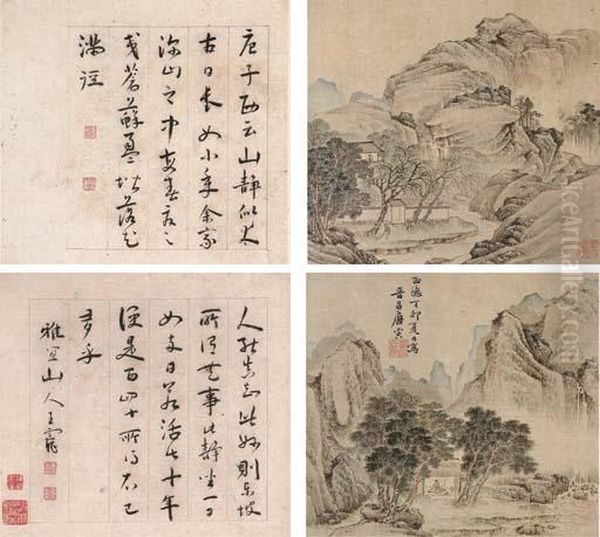 唐子西云山靜似太
古日長如小年余家
深山之中每春夏之
交蒼蘚盈堦落花
滿徑
人能真知此妙則東坡
所謂無事此靜坐一日
如兩日若活七十年
便是百四十所得不已
多乎
雅宜山人王寵
正德丁卯夏日寫
晉昌唐寅